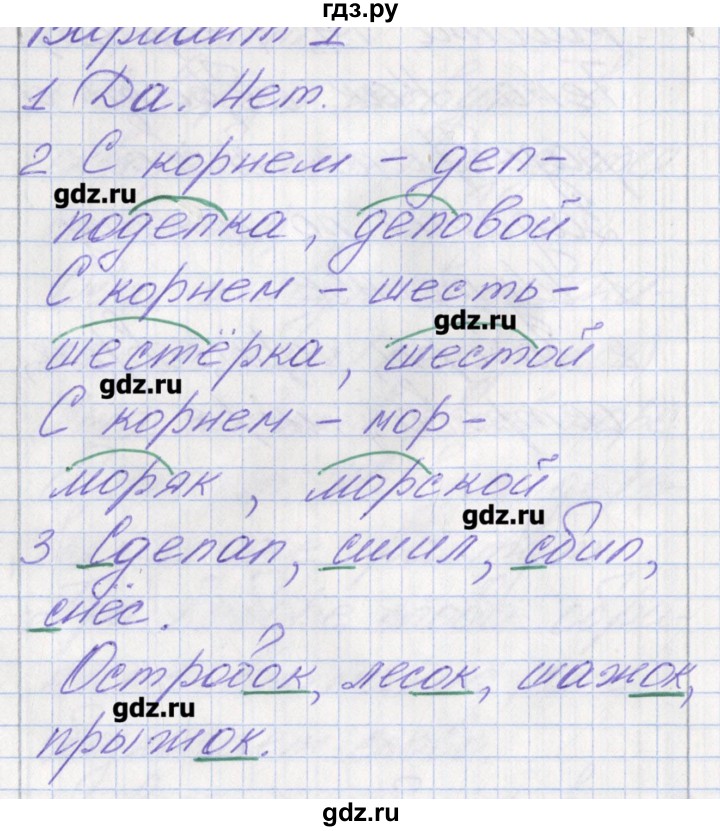 гдз.ру
Вариант 1
1 Да. Нет.
2 С корнем - дел-
gdz.ru
поделка, деловой
С корнем - шесть-
gdz.ru
шестёрка, шестой
gdz.ru
С корнем - мор-
моряк, морской
gdz.ru
3 Сделал, сшил, сбил,
снёс.
Остробок, лесок, шажок,
gdz.ru
прыжок.
gdz.ru